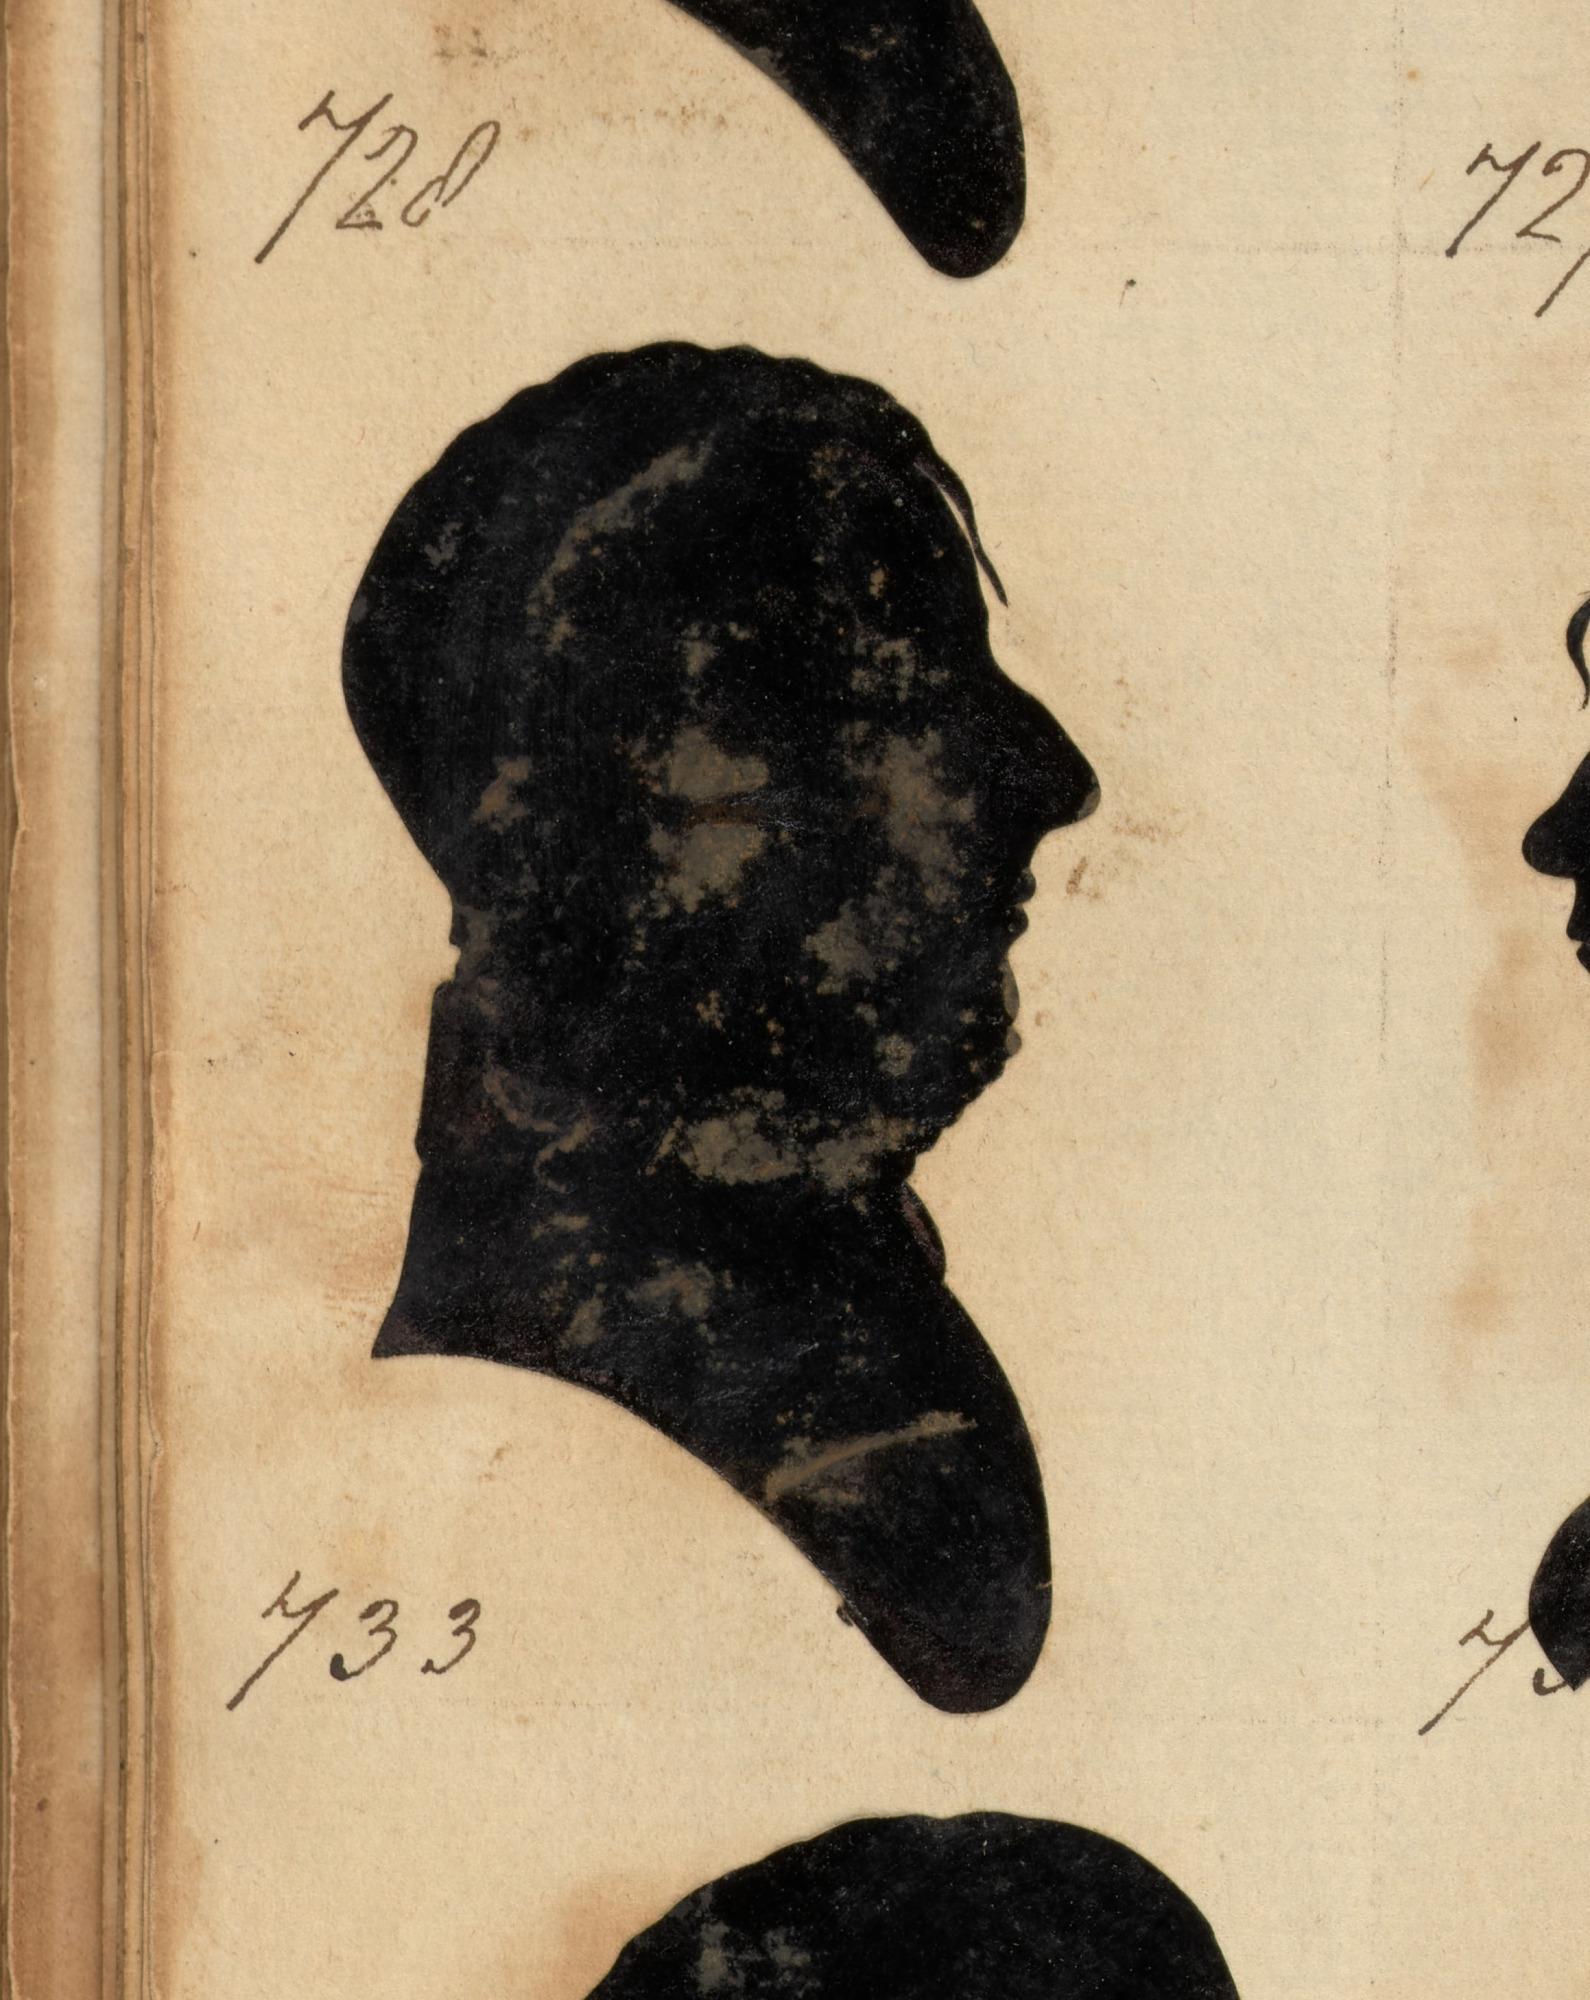 728
72
733
7